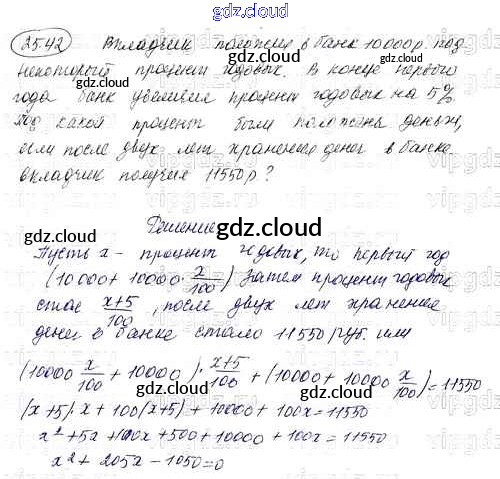 gdz.cloud
25.42 Вкладчик положил в банк 10000р. под
некоторый процент годовых. В конце первого
года банк увеличил процент годовых на 5%
Под какой процент были положены деньги,
если после двух лет хранения денег в банке
вкладчик получил 11550р?
Решение
Пусть x - процент годовых, то первый год
(10000 + 10000 x/100) Затем процент годовых
стал x+5/100, после двух лет хранения
денег в банке стало 11550 руб. или
(10000 x/100 + 10000) · x+5/100 + (10000 + 10000 x/100) = 11550
(x+5)·x + 100(x+5) + 10000 + 100x = 11550
x² + 5x + 100x + 500 + 10000 + 100x = 11550
x² + 205x - 1050 = 0